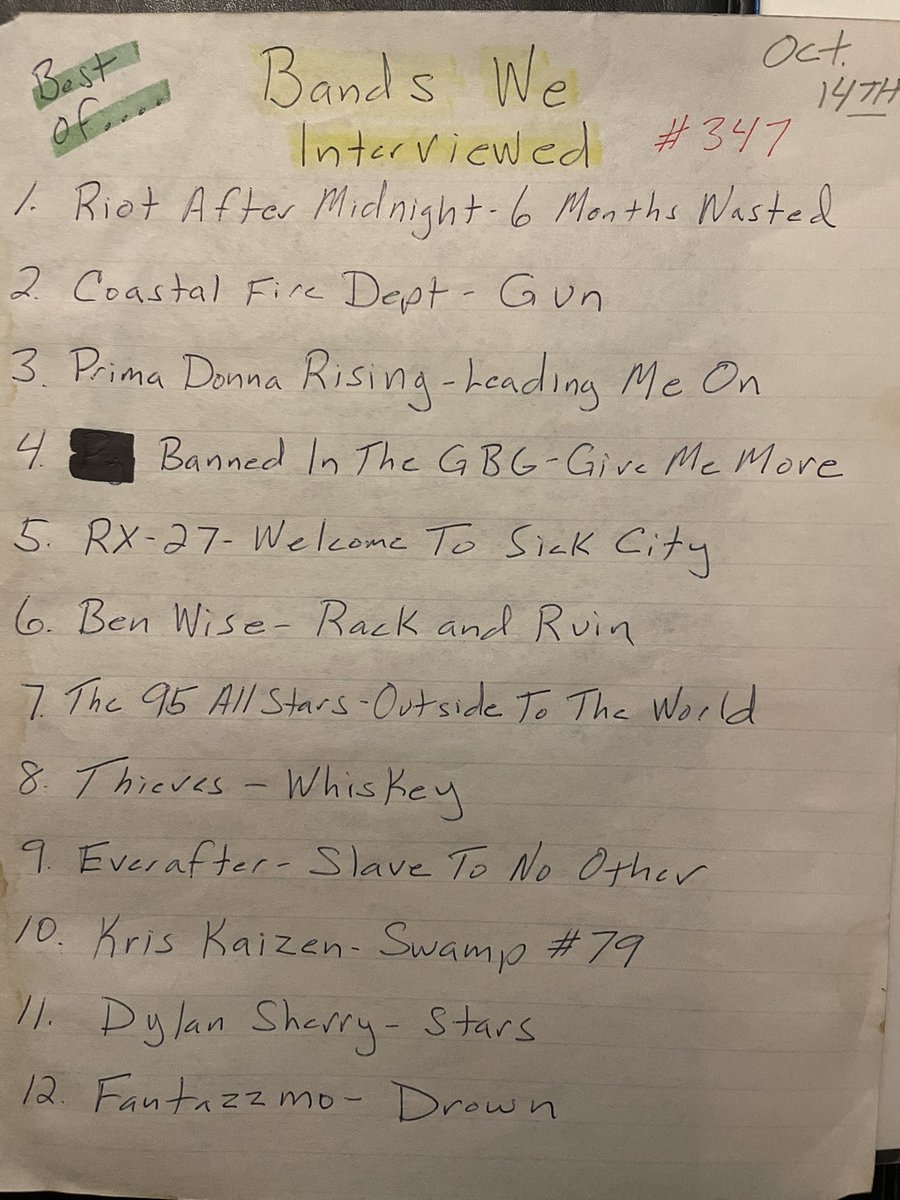 Best
of....
Bands We
Interviewed
Oct.
14TH
#347
1. Riot After Midnight-6 Months Wasted
2. Coastal Fire Dept - Gun
3. Prima Donna Rising-Leading Me On
4. Banned In The GBG-Give Me More
5. RX-27- Welcome To Sick City
6. Ben Wise- Rack and Ruin
7. The 95 All Stars-Outside To The World
8. Thieves - Whiskey
9. Everafter- Slave To No Other
10. Kris Kaizen- Swamp #79
11. Dylan Sherry- Stars
12. Fantazzmo- Drown